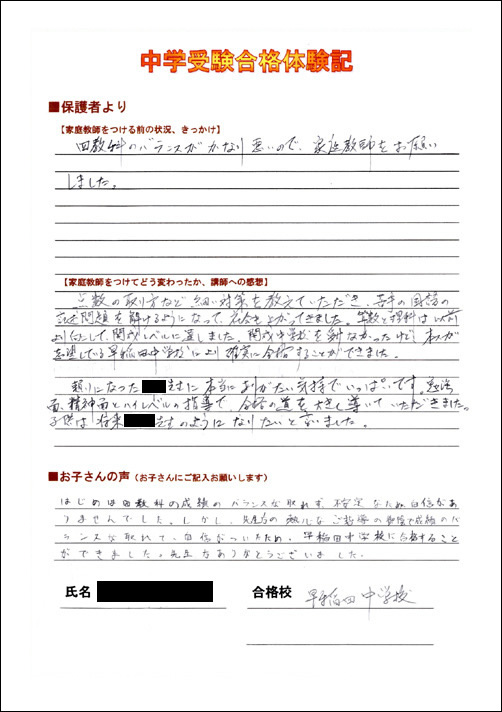 中学受験合格体験記
■保護者より
【家庭教師をつける前の状況、きっかけ】
四教科のバランスがかなり悪いので、家庭教師をお願い
しました。
【家庭教師をつけてどう変わったか、講師への感想】
点数の取り方など細い対策を教えていただき、苦手の国語の
記述問題を解けるようになって、社会も上がってきました。算数と理科は以前
より伸して、開成レベルに達しました。開成中学校を
している早稲田中学校により確実に合格することができました。
頼りになった 先生に本当にありがたい気持でいっぱいです。勉強
面、精神面とハイレベルの指導で、合格の道を大きく導いていただきました。
子供は将来 先生のようになりたいと言いました。
■お子さんの声（お子さんにご記入お願いします）
はじめは四教科の成績のバランスが取れず、不安定なため自信があ
りませんでした。しかし、先生方の熱心なご指導のお陰で成績のバ
ランスが取れて、自信がついたため、早稲田中学校に合格すること
ができました。先生ありがとうございました。
氏名 合格校 早稲田中学校